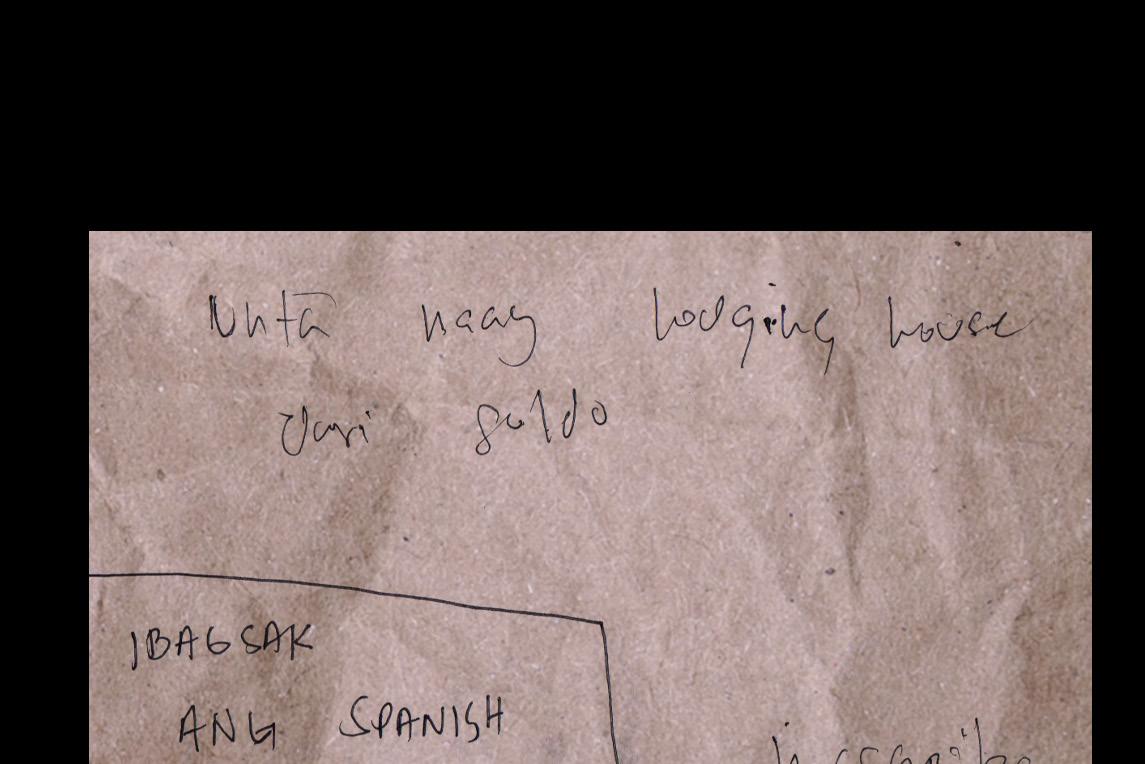 naay lodging house
dari saldo
IBAGSAK
ANG SPANISH